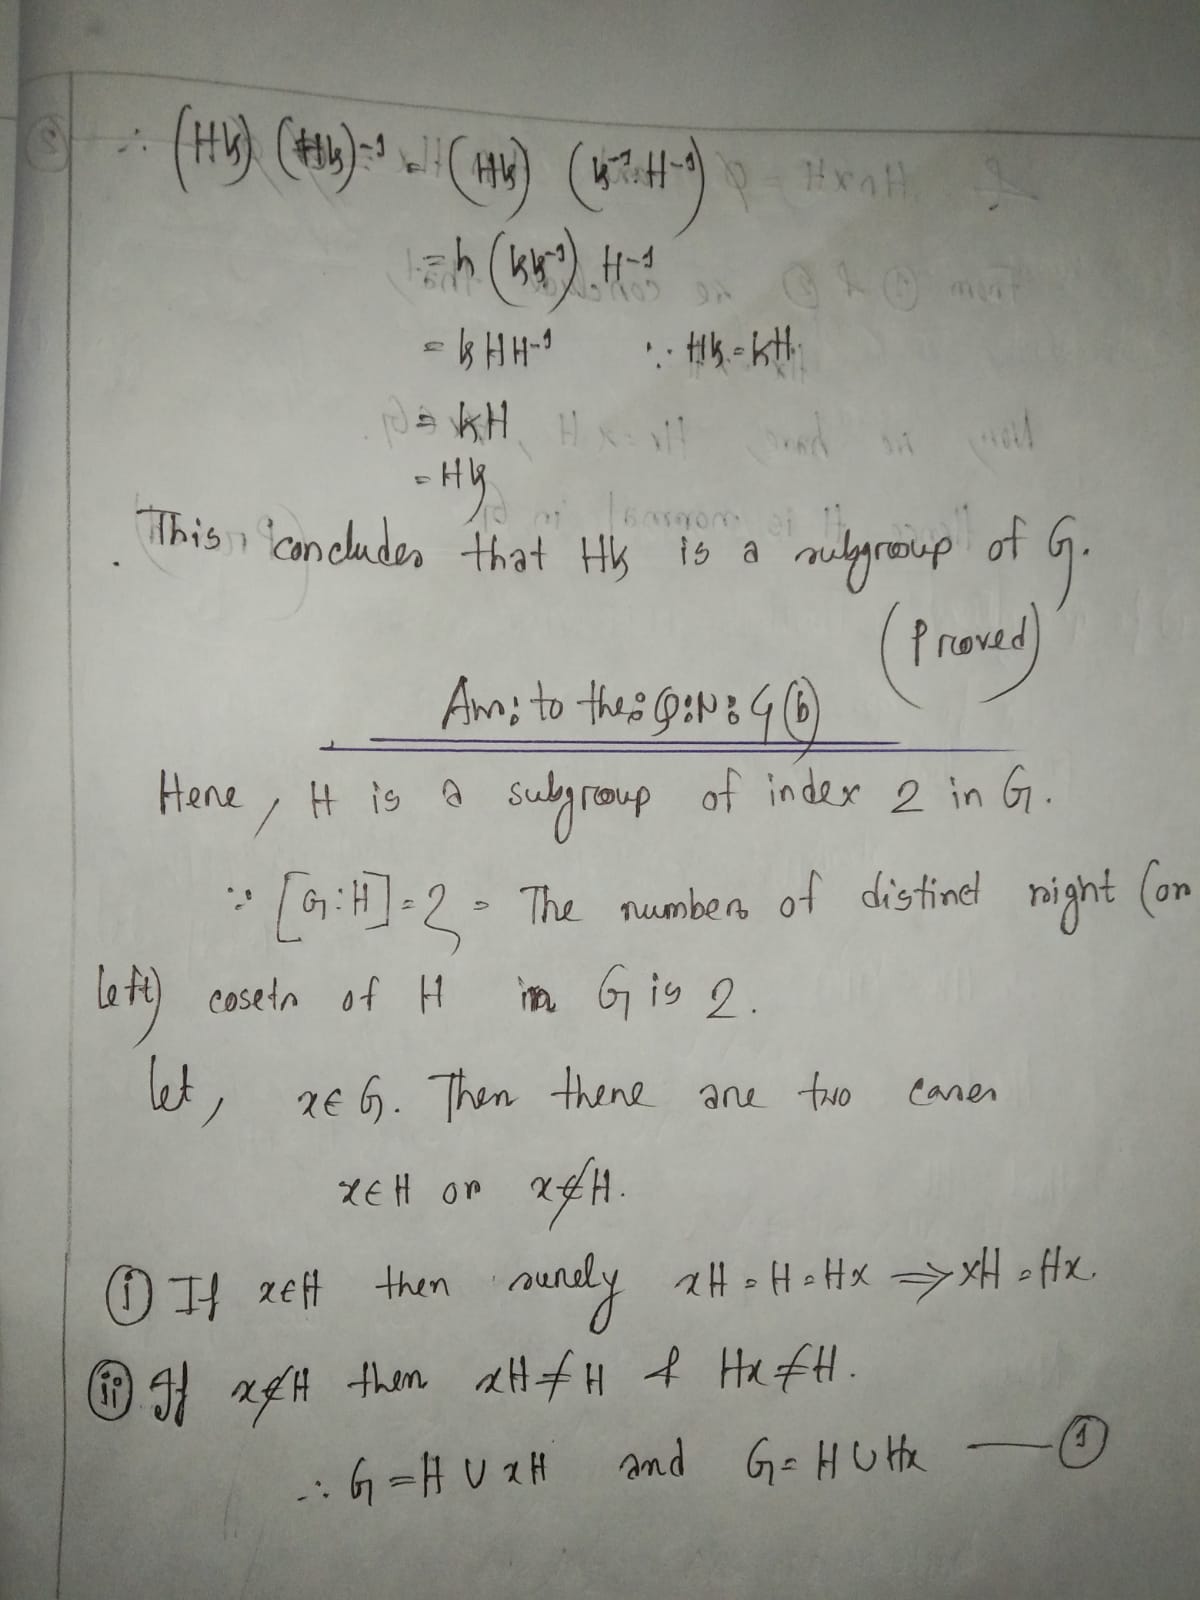 ∴ (HK) (HK)⁻¹ = (HK) (K⁻¹.H⁻¹)
= h (KK⁻¹) H⁻¹
= K HH⁻¹ ∵ HK = KH
= KH
= HK
This concludes that HK is a subgroup of G.
(Proved)
Ans: to the: Q: N: 4 (b)
Here, H is a subgroup of index 2 in G.
∵ [G:H] = 2 = The number of distinct right (or
left) cosets of H in G is 2.
let, x∈G. Then there are two cases
x∈H or x∉H.
(i) If x∈H then surely xH = H = Hx ⇒ xH = Hx.
(ii) If x∉H then xH ≠ H & Hx ≠ H.
∴ G = H ∪ xH and G = H ∪ Hx — (1)